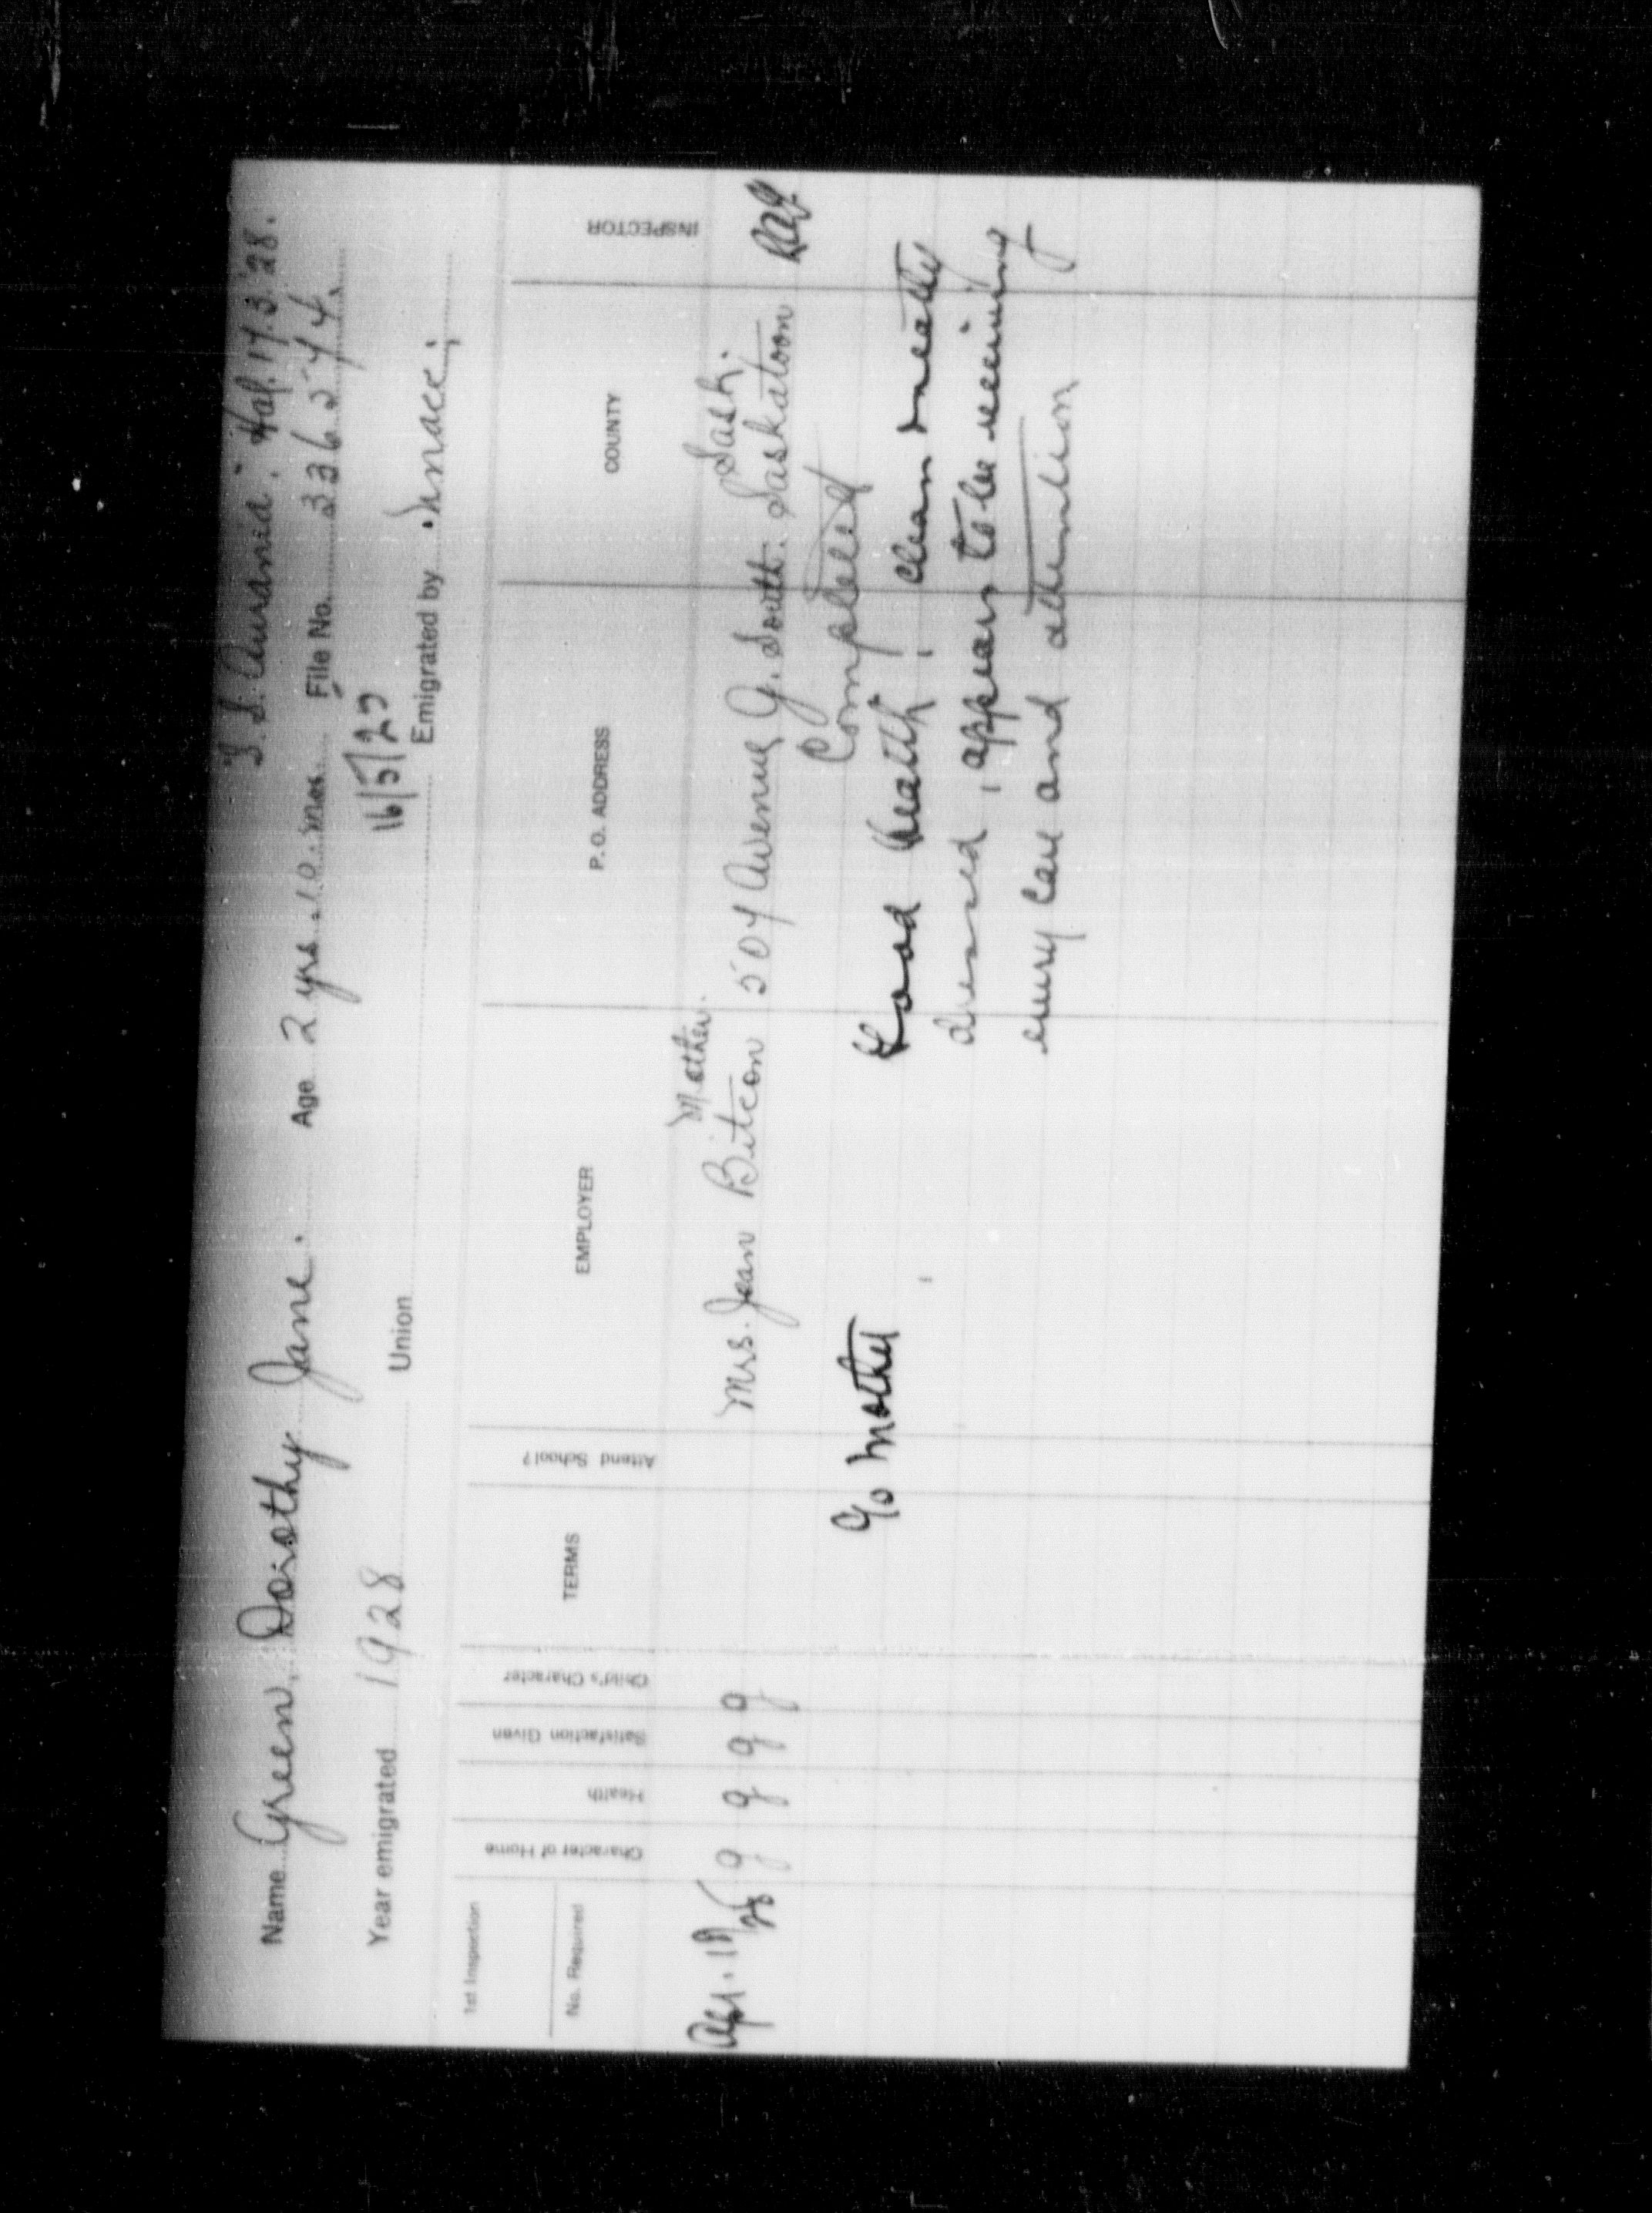 T. S. Ausonia. Hal. 17.3.28.
Name Green, Dorothy Jane. Age 2 yrs. 10. mos. File No. 336574.
16/5/27
Year emigrated 1928 Union Emigrated by
1st Inspection
No. Required
Character of Home Health Satisfaction Given Child's Character TERMS Attend School? EMPLOYER P. O. ADDRESS COUNTY INSPECTOR
Mother. Sask.
Apr. 19/28 g g g g Mrs. Jean Bitcon 507 Avenue G. South. Saskatoon
Completed
c/o Mother Good health, clean & neatly
dressed, appears to be receiving
every care and attention